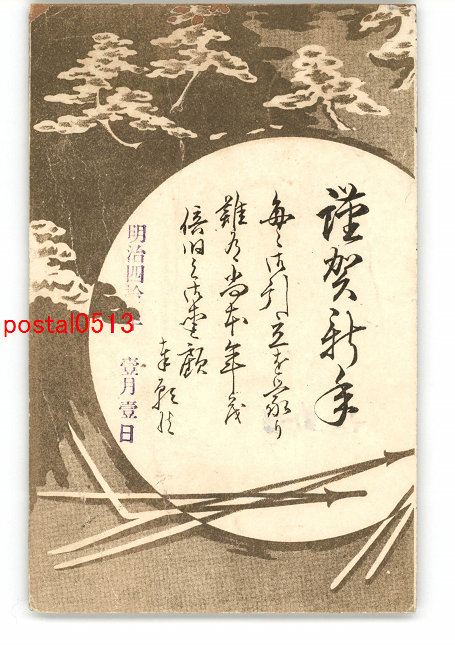 謹賀新年
毎々御引立を蒙り
難有尚本年茂
倍旧之御愛顧
奉願候
明治四拾 一
壹月壹日
postal0513